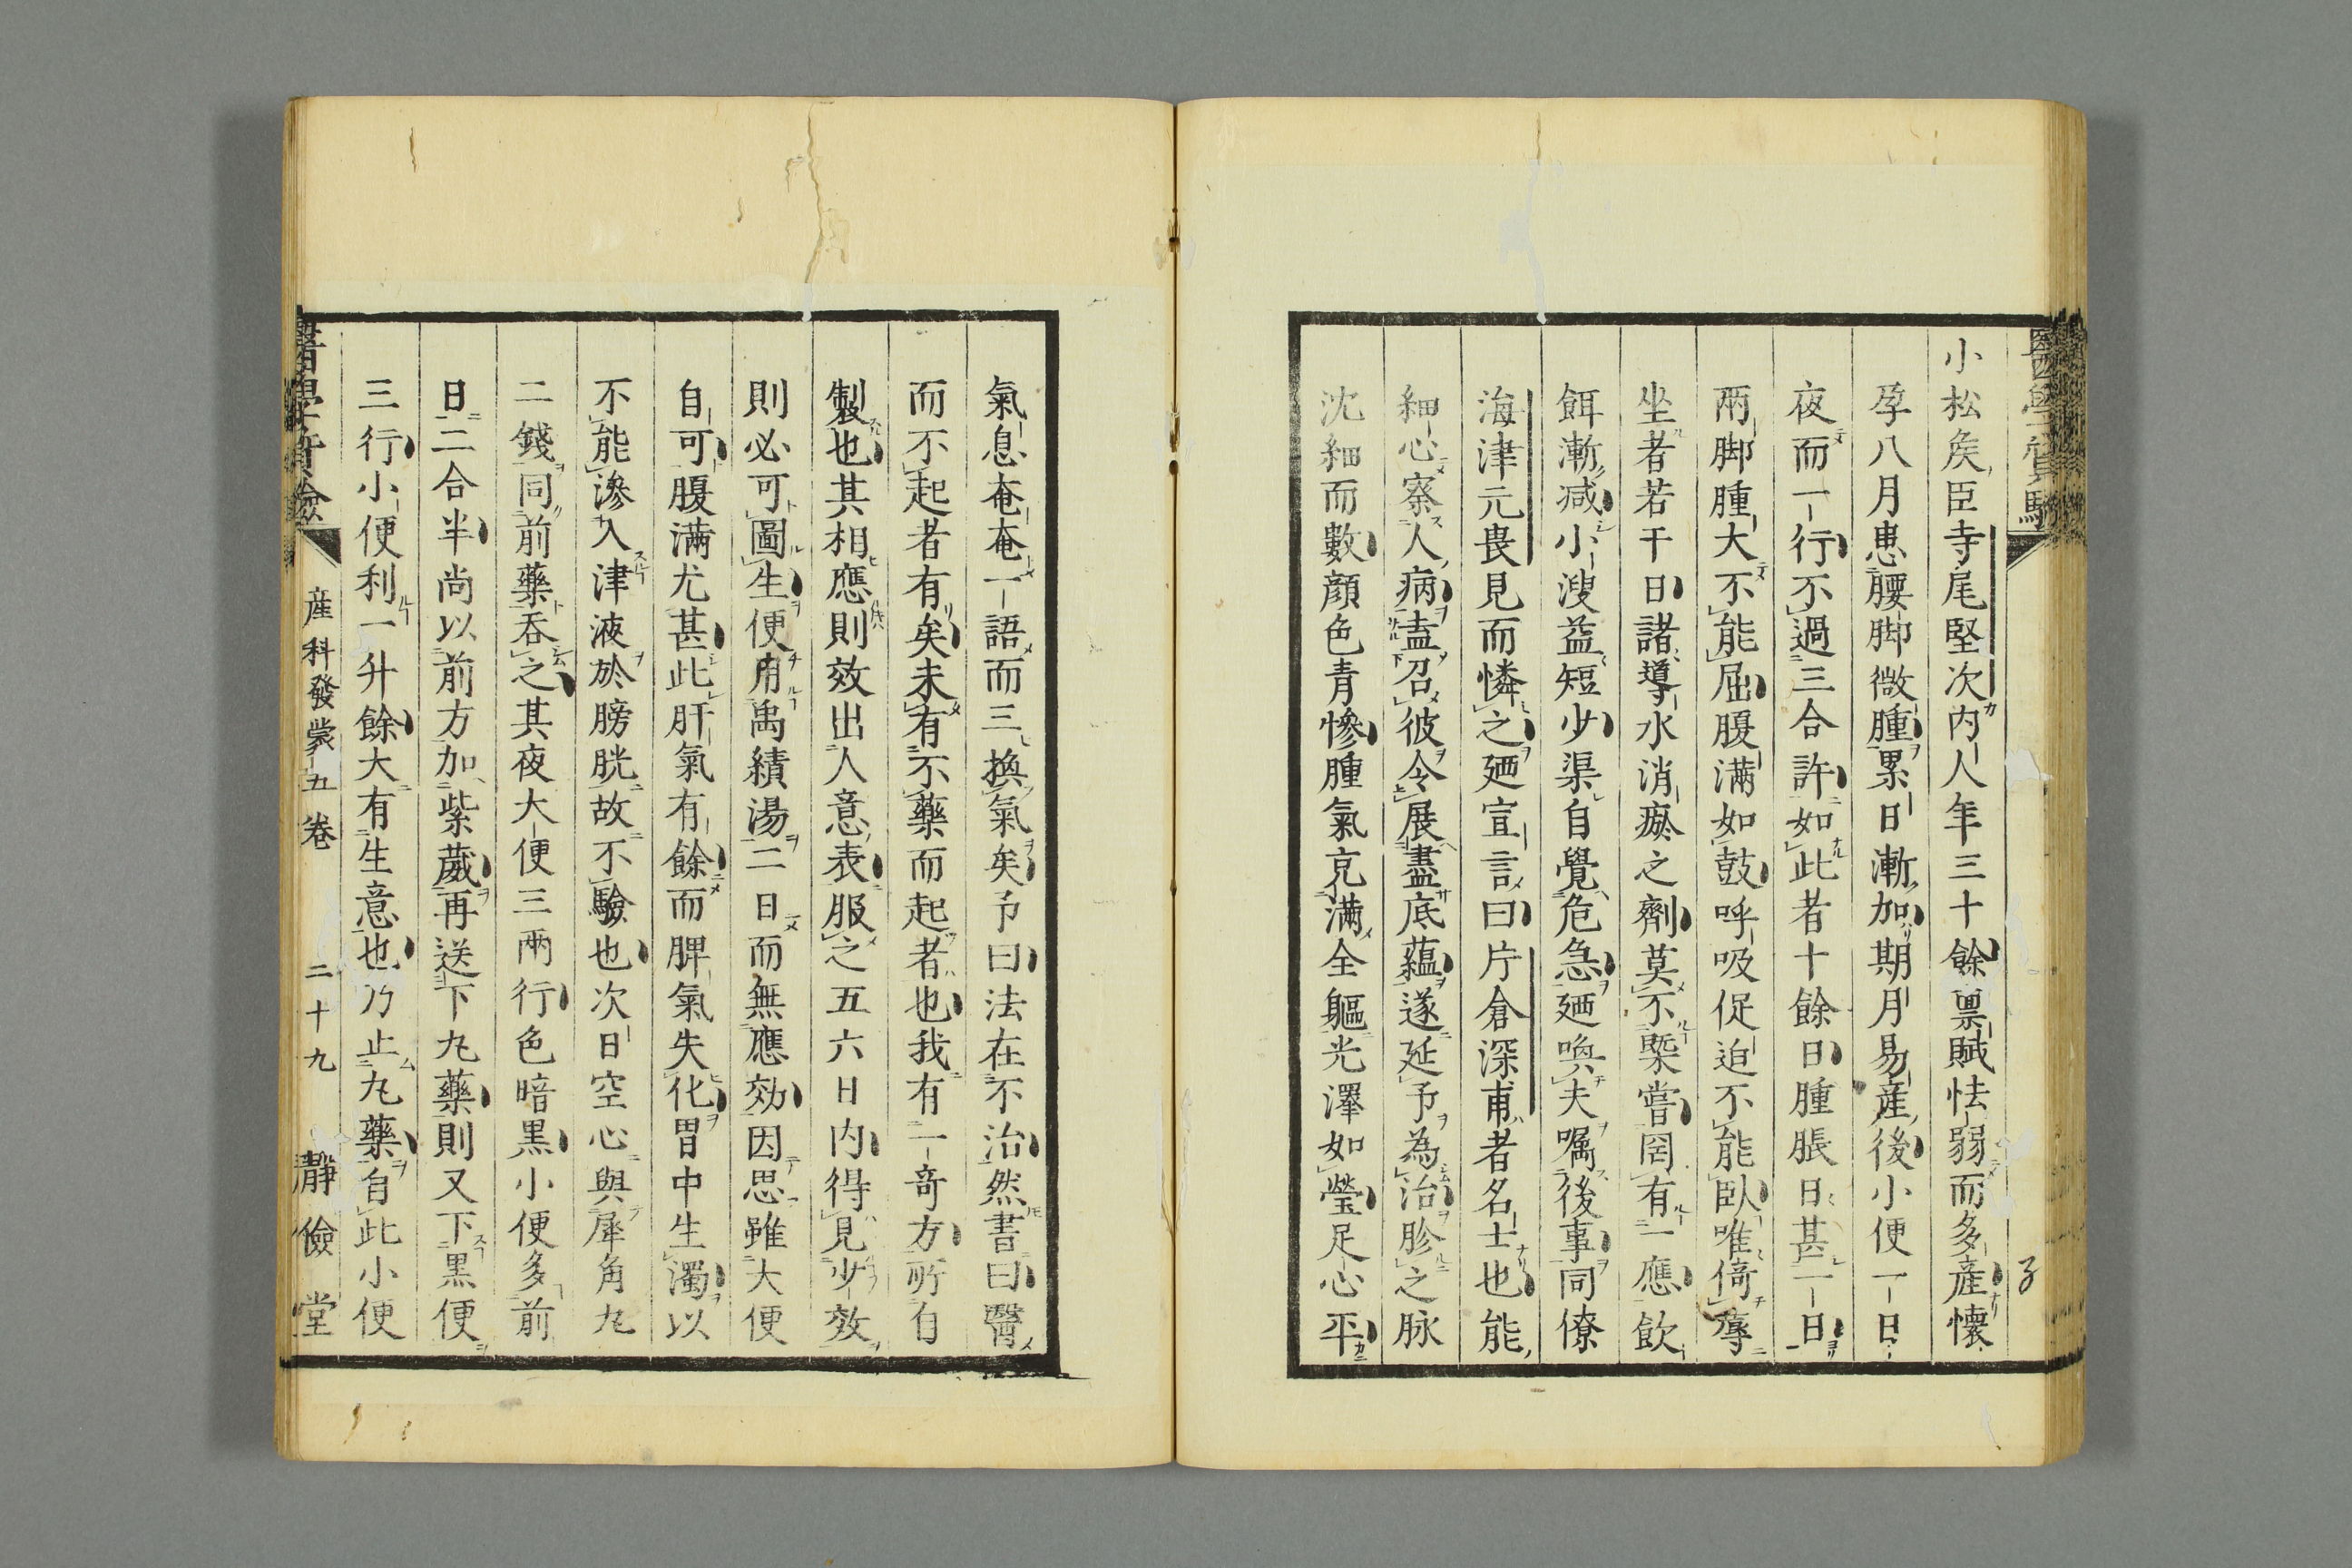 醫學質驗
小松矦臣寺尾堅次内人年三十餘稟賦怯弱而多産懷
孕八月患腰脚微腫累日漸加期月易産後小便一日
夜而一行不過三合許如此者十餘日腫脹日甚一日
兩脚腫大不能屈腹滿如鼓呼吸促迫不能臥唯倚蓐
坐者若干日諸導水消瘀之劑莫不槩嘗罔有一應飲
餌漸减小溲益短少渠自覺危急廼喚夫囑後事同僚
海津元畏見而憐之廼宣言曰片倉深甫者名士也能
細心察人病盍召彼令展盡底蘊遂延予為治胗之脉
沈細而數顔色青慘腫氣克滿全軀光澤如瑩足心平
氣息奄奄一語而三換氣矣予曰法在不治然書曰醫
而不起者有矣未有不藥而起者也我有一竒方所自
製也其相應則效出人意表服之五六日内得見少效
則必可圖生便用禹績湯二日而無應効因思雖大便
自可腹滿尤甚此肝氣有餘而脾氣失化胃中生濁以
不能滲入津液於膀胱故不驗也次日空心與犀角丸
二錢同前藥呑之其夜大便三兩行色暗黒小便多前
日二合半尚以前方加紫葳再送下丸藥則又下黒便
三行小便利一升餘大有生意也乃止丸藥自此小便
醫學質驗 産科發蒙五卷 二十九 靜儉堂